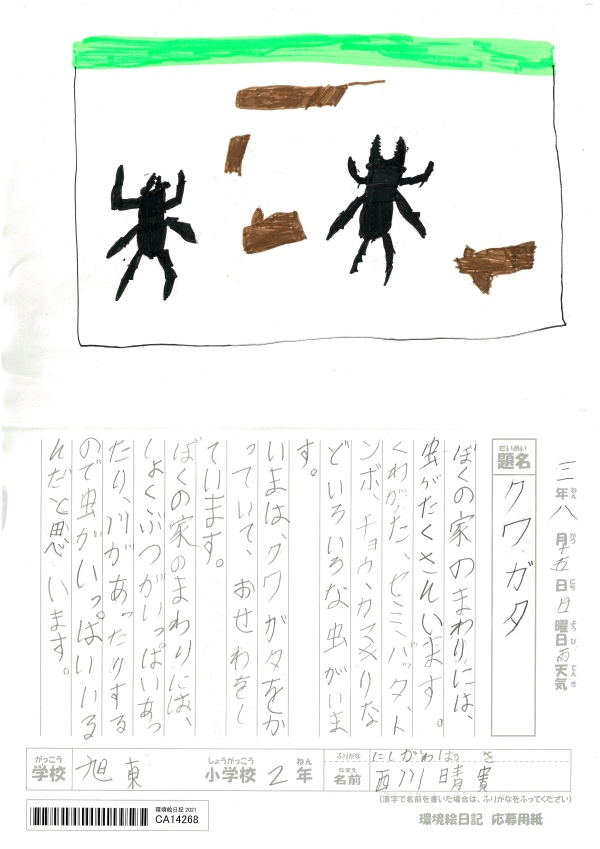 三年八月十五日日曜日雨天気
ねん
がつ
にち
ようび
てんき
だいめい
題名
クワガタ
ぼくの家のまわりには、
虫がたくさんいます。
くわがた、セミ、バッタ、ト
ンボ、チョウ、カマキリな
どいろいろな虫がいま
す。
いまは、クワガタをか
っていて、おせわをし
ています。
ぼくの家のまわりには、
しょくぶつがいっぱいあっ
たり、川があったりする
ので虫がいっぱいいる
んだと思います。
がっこう
学校
旭東
しょうがっこう
小学校
2
ねん
年
ふりがな
にしがわはるき
なまえ
名前
西川晴貴
(漢字で名前を書いた場合は、ふりがなをふってください)
環境絵日記 2021
CA14268
環境絵日記 応募用紙